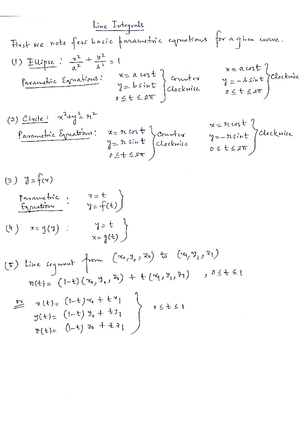 Line Integrals
First we note few basic parametric equations for a given curve.
(1) Ellipse : x²/a² + y²/b² = 1
Parametric Equations : x = a cos t
y = b sin t
0 ≤ t ≤ 2π } Counter Clockwise
x = a cos t
y = -b sin t
0 ≤ t ≤ 2π } Clockwise
(2) Circle : x² + y² = r²
Parametric Equations : x = r cos t
y = r sin t
0 ≤ t ≤ 2π } Counter Clockwise
x = r cos t
y = -r sin t
0 ≤ t ≤ 2π } Clockwise
(3) y = f(x)
Parametric Equation : x = t
y = f(t) }
(4) x = g(y) : y = t
x = g(t) }
(5) Line segment from (x₀, y₀, z₀) to (x₁, y₁, z₁)
r(t) = (1-t) (x₀, y₀, z₀) + t (x₁, y₁, z₁) , 0 ≤ t ≤ 1
or x(t) = (1-t) x₀ + t x₁
y(t) = (1-t) y₀ + t y₁
z(t) = (1-t) z₀ + t z₁ } 0 ≤ t ≤ 1